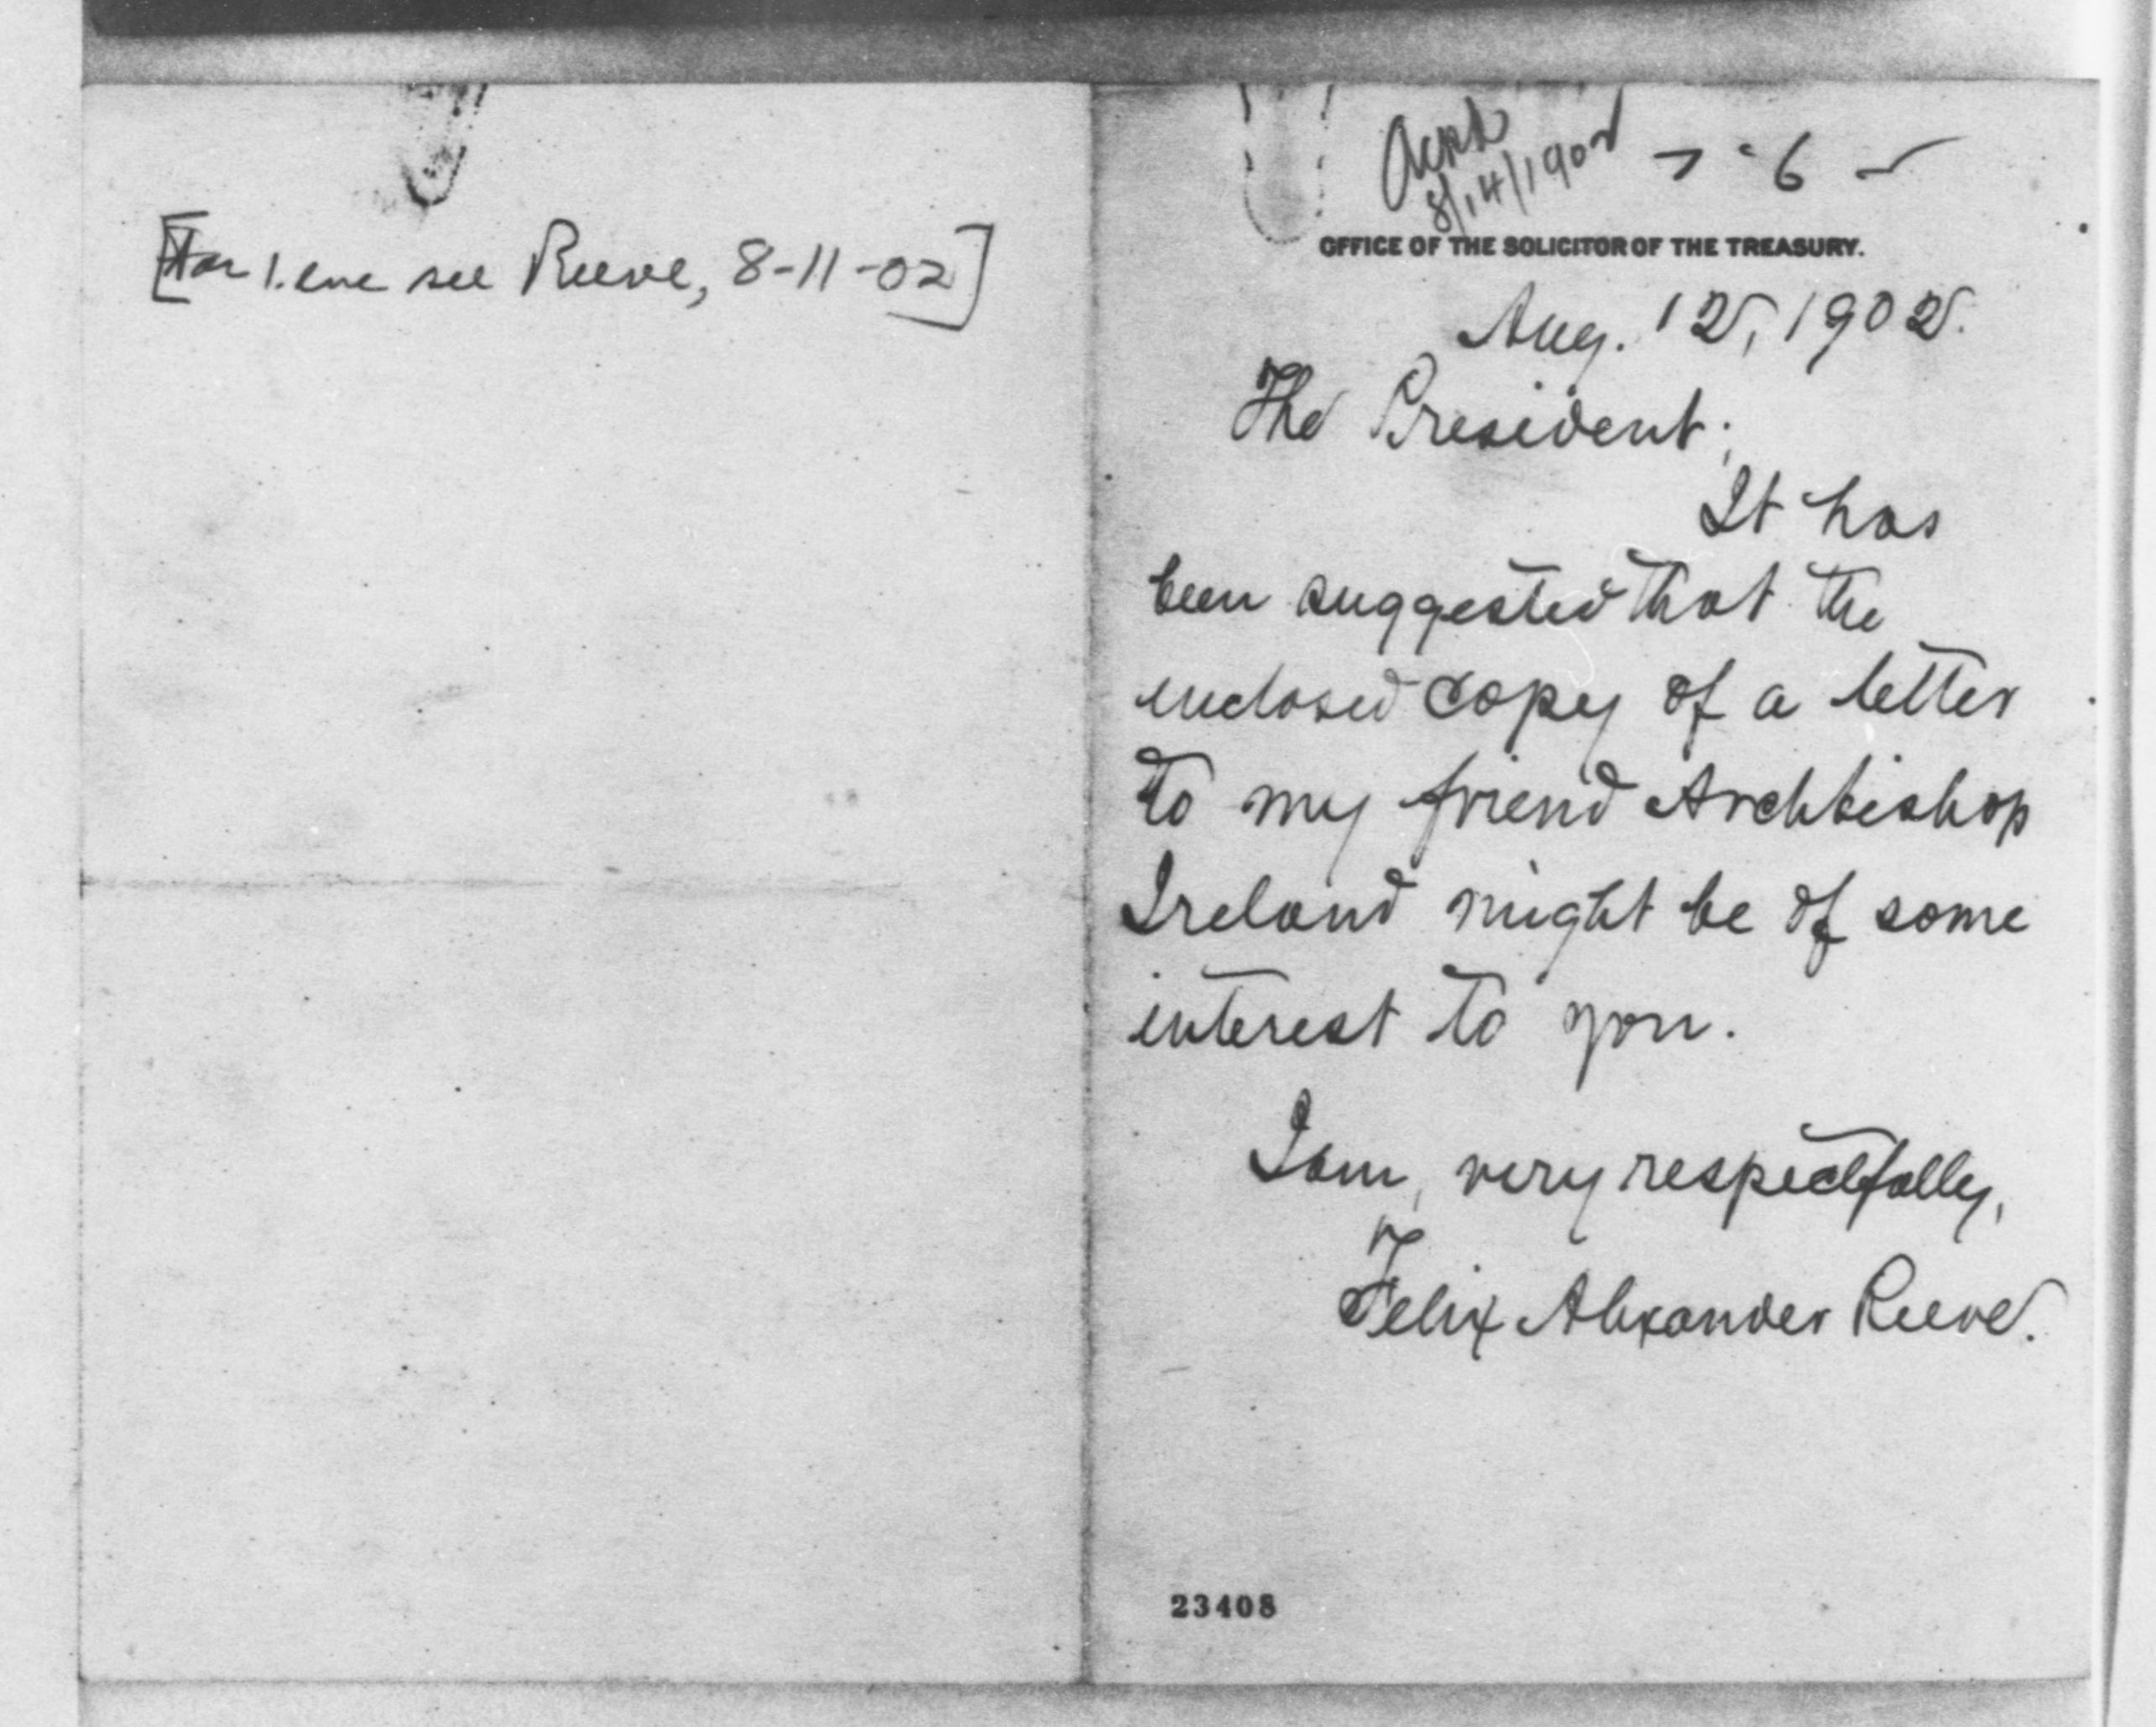 [For 1. enc see Reeve, 8-11-02]
Ackd
8/14/1902
OFFICE OF THE SOLICITOR OF THE TREASURY.
Aug. 12, 1902.
The President:
It has
been suggested that the
enclosed copy of a letter
to my friend Archbishop
Ireland might be of some
interest to you.
I am, very respectfully,
Felix Alexander Reeve.
23408